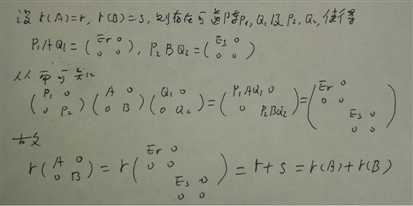 设 r(A)=r, r(B)=s, 则存在可逆阵P₁, Q₁及P₂, Q₂, 使得
P₁AQ₁=(Er 0; 0 0), P₂BQ₂=(Es 0; 0 0)
从而可知
(P₁ 0; 0 P₂)(A 0; 0 B)(Q₁ 0; 0 Q₂)=(P₁AQ₁ 0; 0 P₂BQ₂)=(Er 0; 0 0; Es 0; 0 0)
故
r(A 0; 0 B)=r(Er 0; 0 0; Es 0; 0 0)=r+s=r(A)+r(B)